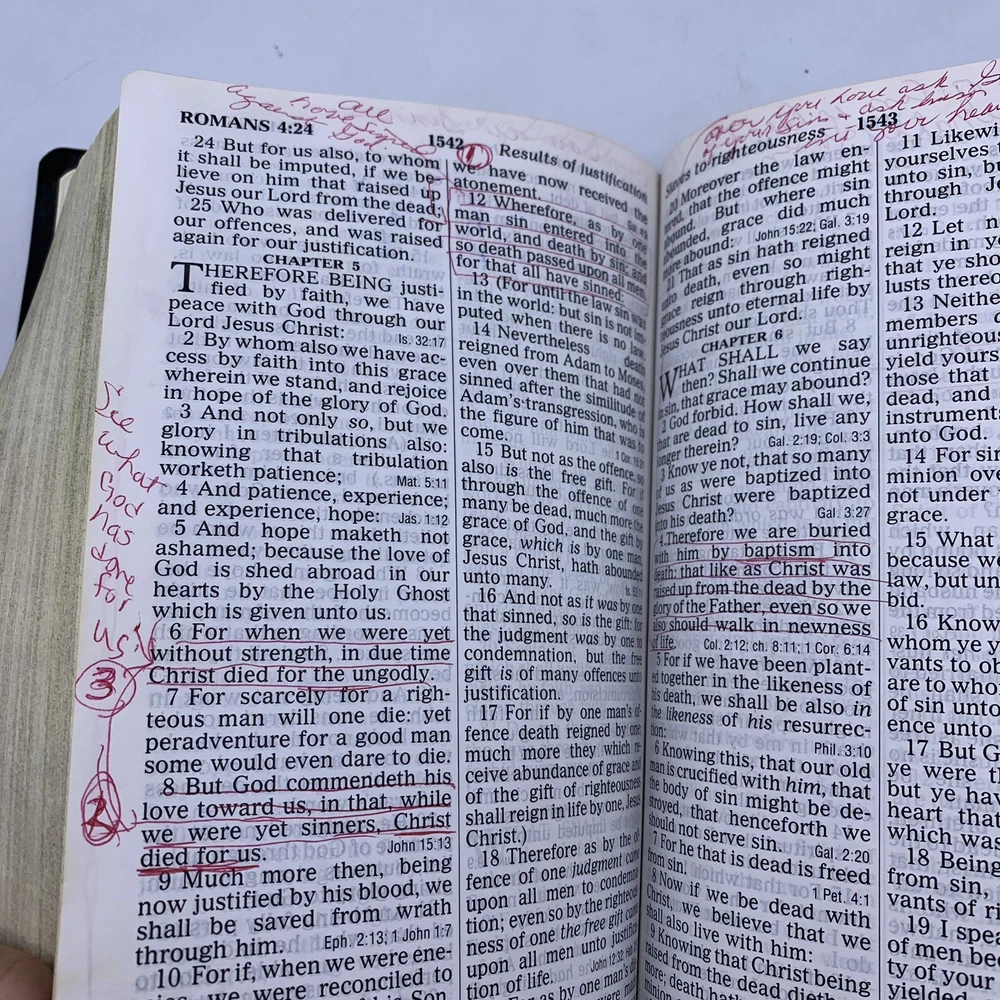 all
have sinned
against God
ROMANS 4:24
1542
1
Results of justification
24 But for us also, to whom
it shall be imputed, if we be-
lieve on him that raised up
Jesus our Lord from the dead;
25 Who was delivered for
our offences, and was raised
again for our justification.
CHAPTER 5
THEREFORE BEING justi-
fied by faith, we have
peace with God through our
Lord Jesus Christ:
Is. 32:17
2 By whom also we have ac-
cess by faith into this grace
wherein we stand, and rejoice
in hope of the glory of God.
3 And not only so, but we
glory in tribulations also:
knowing that tribulation
worketh patience;
Mat. 5:11
4 And patience, experience;
and experience, hope:
Jas. 1:12
5 And hope maketh not
ashamed; because the love of
God is shed abroad in our
hearts by the Holy Ghost
which is given unto us.
6 For when we were yet
without strength, in due time
Christ died for the ungodly.
7 For scarcely for a righ-
teous man will one die: yet
peradventure for a good man
some would even dare to die.
8 But God commendeth his
love toward us, in that, while
we were yet sinners, Christ
died for us.
John 15:13
9 Much more then, being
now justified by his blood, we
shall be saved from wrath
through him.
Eph. 2:13; 1 John 1:7
10 For if, when we were ene-
mies, we were reconciled to
his Son
See
what
God
has
done
for
us!
3
2
we have now received the
atonement.
12 Wherefore, as by one
man sin entered into the
world, and death by sin; and
so death passed upon all men,
for that all have sinned:
13 (For until the law sin was
in the world: but sin is not im-
puted when there is no law.
14 Nevertheless death
reigned from Adam to Moses,
even over them that had not
sinned after the similitude of
Adam's transgression, who is
the figure of him that was to
come.
15 But not as the offence, so
also is the free gift. For if
through the offence of one
many be dead, much more the
grace of God, and the gift by
grace, which is by one man,
Jesus Christ, hath abounded
unto many.
16 And not as it was by one
that sinned, so is the gift: for
the judgment was by one to
condemnation, but the free
gift is of many offences unto
justification.
17 For if by one man's of-
fence death reigned by one;
much more they which re-
ceive abundance of grace and
of the gift of righteousness
shall reign in life by one, Jesus
Christ.)
18 Therefore as by the of-
fence of one judgment came
upon all men to condemna-
tion; even so by the righteous-
ness of one the free gift came
upon all men unto justifica-
tion of life.
John 12:32;
For as by one man's
Slaves to righteousness
1543
20 Moreover the law en-
tered, that the offence might
abound. But where sin
abounded, grace did much
more abound:
John 15:22; Gal. 3:19
21 That as sin hath reigned
unto death, even so might
grace reign through righ-
teousness unto eternal life by
Jesus Christ our Lord.
CHAPTER 6
WHAT SHALL we say
then? Shall we continue
in sin, that grace may abound?
2 God forbid. How shall we,
that are dead to sin, live any
longer therein?
Gal. 2:19; Col. 3:3
3 Know ye not, that so many
of us as were baptized into
Jesus Christ were baptized
into his death?
Gal. 3:27
4 Therefore we are buried
with him by baptism into
death: that like as Christ was
raised up from the dead by the
glory of the Father, even so we
also should walk in newness
of life.
Col. 2:12; ch. 8:11; 1 Cor. 6:14
5 For if we have been plant-
ed together in the likeness of
his death, we shall be also in
the likeness of his resurrec-
tion:
Phil. 3:10
6 Knowing this, that our old
man is crucified with him, that
the body of sin might be de-
stroyed, that henceforth we
should not serve sin.
Gal. 2:20
7 For he that is dead is freed
from sin.
1 Pet. 4:1
8 Now if we be dead with
Christ, we believe that we
shall also live with him:
9 Knowing that Christ being
raised from the dead dieth no
more; death hath
11 Likewi
yourselves
unto sin, bu
through Je
Lord.
12 Let n
reign in yo
that ye sho
lusts thereo
13 Neithe
members
unrighteous
yield yours
those that
dead, and
instrument
unto God.
14 For sin
minion ove
not under
grace.
15 What
because we
law, but un
bid.
16 Know
whom ye y
vants to ob
are to who
of sin unto
ence unto
17 But G
ye were th
but ye hav
heart that
which was
18 Being
from sin,
vants of ri
19 I spea
of men bec
ty of your
yielded